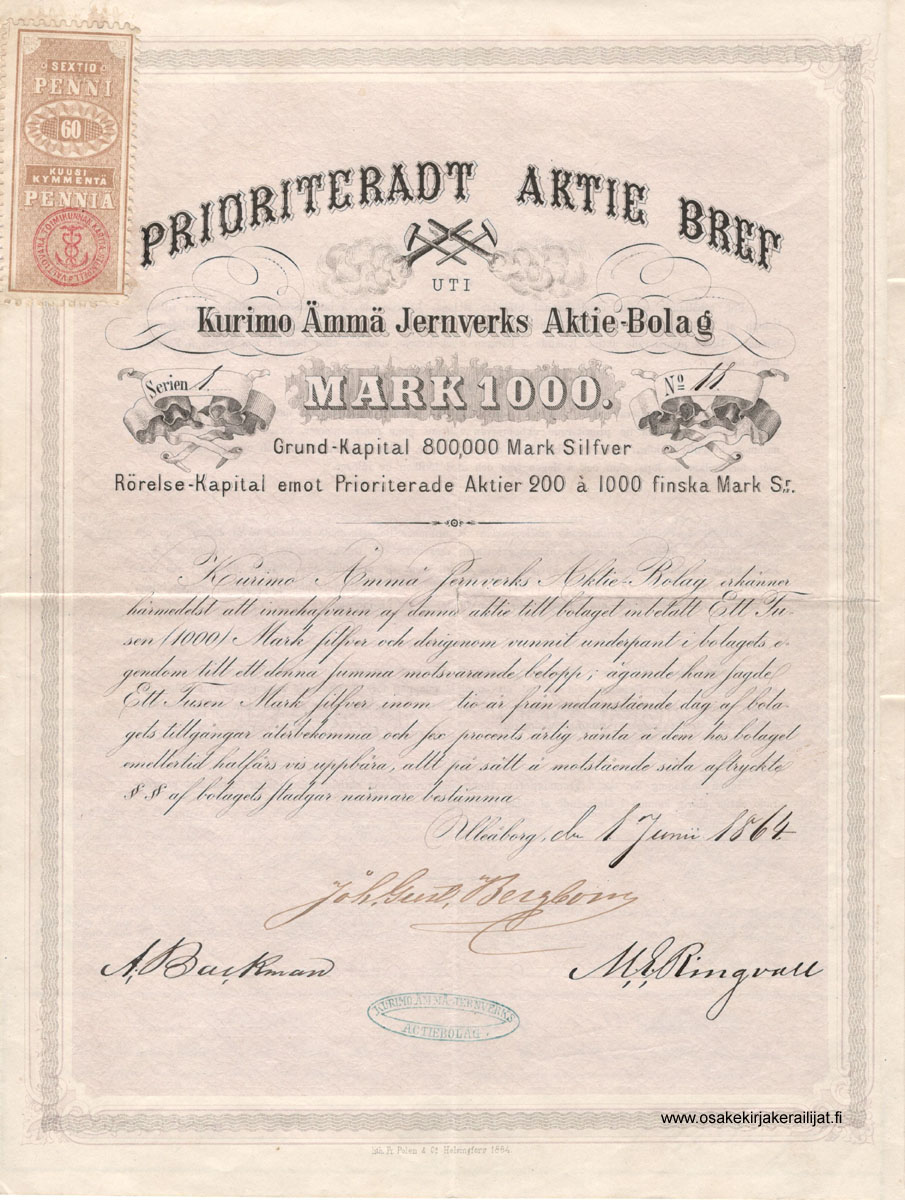 SEXTIO
PENNI
60
KUUSI
KYMMENTÄ
PENNIÄ
PRIORITERADT AKTIE BREF
UTI
Kurimo Ämmä Jernverks Aktie-Bolag
Serien 1.
MARK 1000.
No 18
Grund-Kapital 800,000 Mark Silfver
Rörelse-Kapital emot Prioriterade Aktier 200 à 1000 finska Mark S:r.
Kurimo Ämmä Jernverks Aktie-Bolag erkänner
härmedelst att innehafvaren af denna aktie till bolaget inbetalt Ett Tu-
sen (1000) Mark silfver och derigenom vunnit underpant i bolagets e-
gendom till ett denna summa motsvarande belopp; ägande han sagde
Ett Tusen Mark silfver inom tio år från nedanstående dag af bola-
gets tillgångar återbekomma och sex procents årlig ränta å dem hos bolaget
emellertid halfårs vis uppbära, allt på sätt å motstående sida aftryckte
§.§ af bolagets stadgar närmare bestämma.
Uleåborg, den 1 Junii 1864.
Joh. Gust. Bergbom
A. Backman
M. E. Ringvall
KURIMO ÄMMÄ JERNVERKS
ACTIEBOLAG
www.osakekirjakerailijat.fi
Lith. Fr. Polen & Co Helsingfors 1864